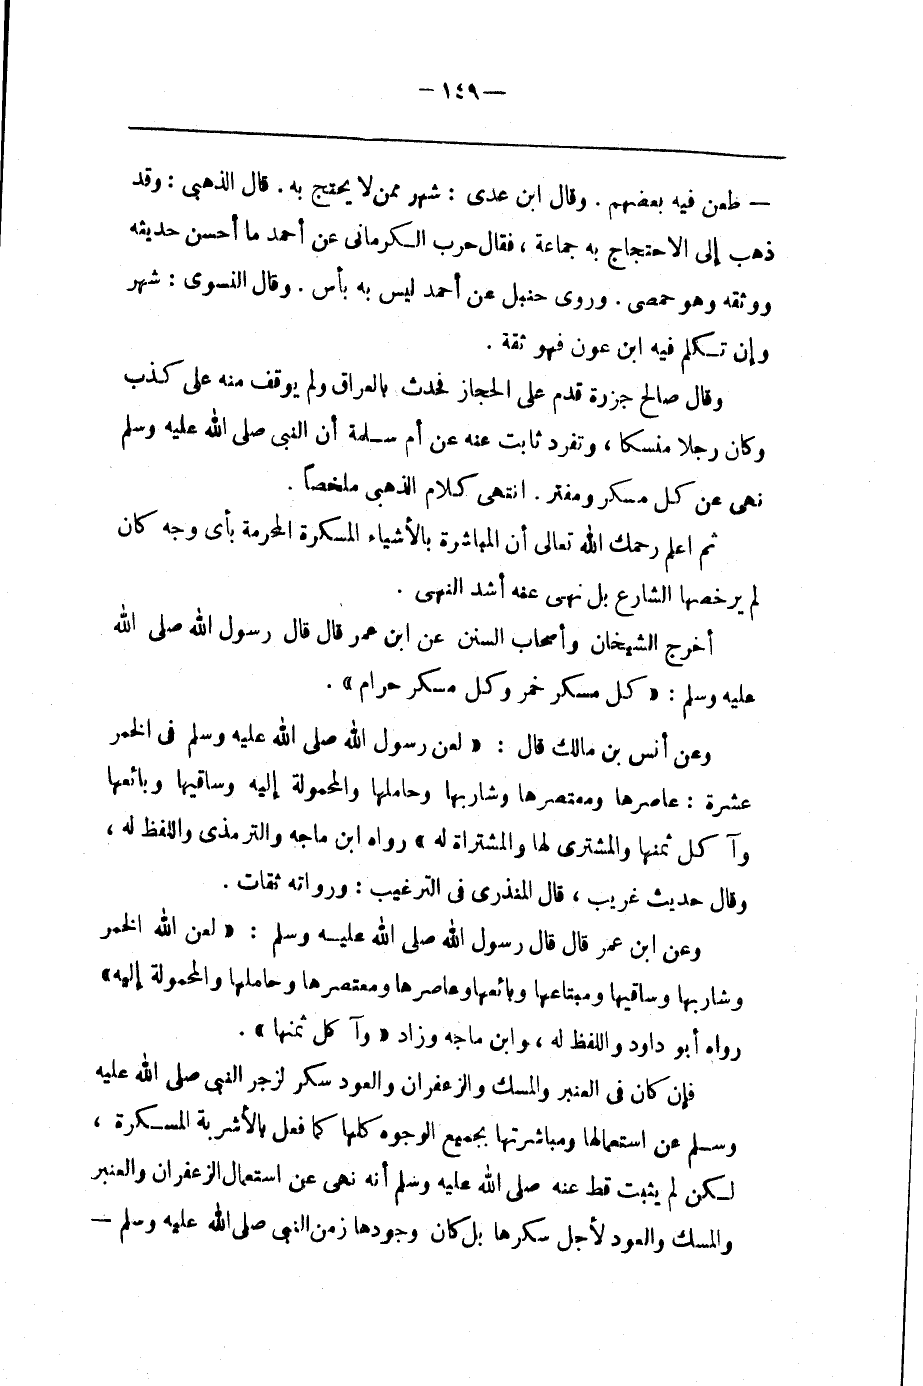 — ١٤٩ —
— طعن فيه بعضهم . وقال ابن عدى : شهر ممن لا يحتج به . قال الذهبى : وقد
ذهب إلى الاحتجاج به جماعة ، فقال حرب الكرمانى عن أحمد ما أحسن حديثه
ووثقه وهو حمصى . وروى حنبل عن أحمد ليس به بأس . وقال النسوى : شهر
وإن تكلم فيه ابن عون فهو ثقة .
وقال صالح جزرة قدم على الحجاز فحدث بالعراق ولم يوقف منه على كذب
وكان رجلا منسكا ، وتفرد ثابت عنه عن أم سلمة أن النبى صلى الله عليه وسلم
نهى عن كل مسكر ومفتر . انتهى كلام الذهبى ملخصاً .
ثم اعلم رحمك الله تعالى أن المباشرة بالأشياء المسكرة المحرمة بأى وجه كان
لم يرخصها الشارع بل نهى عنه أشد النهى .
أخرج الشيخان وأصحاب السنن عن ابن عمر قال قال رسول الله صلى الله
عليه وسلم : « كل مسكر خمر وكل مسكر حرام » .
وعن أنس بن مالك قال : « لعن رسول الله صلى الله عليه وسلم فى الخمر
عشرة : عاصرها ومعتصرها وشاربها وحاملها والمحمولة إليه وساقيها وبائعها
وآ كل ثمنها والمشترى لها والمشتراة له » رواه ابن ماجه والترمذى واللفظ له ،
وقال حديث غريب ، قال المنذرى فى الترغيب : ورواته ثقات .
وعن ابن عمر قال قال رسول الله صلى الله عليه وسلم : « لعن الله الخمر
وشاربها وساقيها ومبتاعها وبائعها وعاصرها ومعتصرها وحاملها والمحمولة إليه»
رواه أبو داود واللفظ له ، وابن ماجه وزاد « وآ كل ثمنها » .
فإن كان فى العنبر والمسك والزعفران والعود سكر لزجر النبى صلى الله عليه
وسلم عن استعمالها ومباشرتها بجميع الوجوه كلها كما فعل بالأشربة المسكرة ،
لكن لم يثبت قط عنه صلى الله عليه وسلم أنه نهى عن استعمال الزعفران والعنبر
والمسك والعود لأجل سكرها بل كان وجودها زمن النبى صلى الله عليه وسلم —